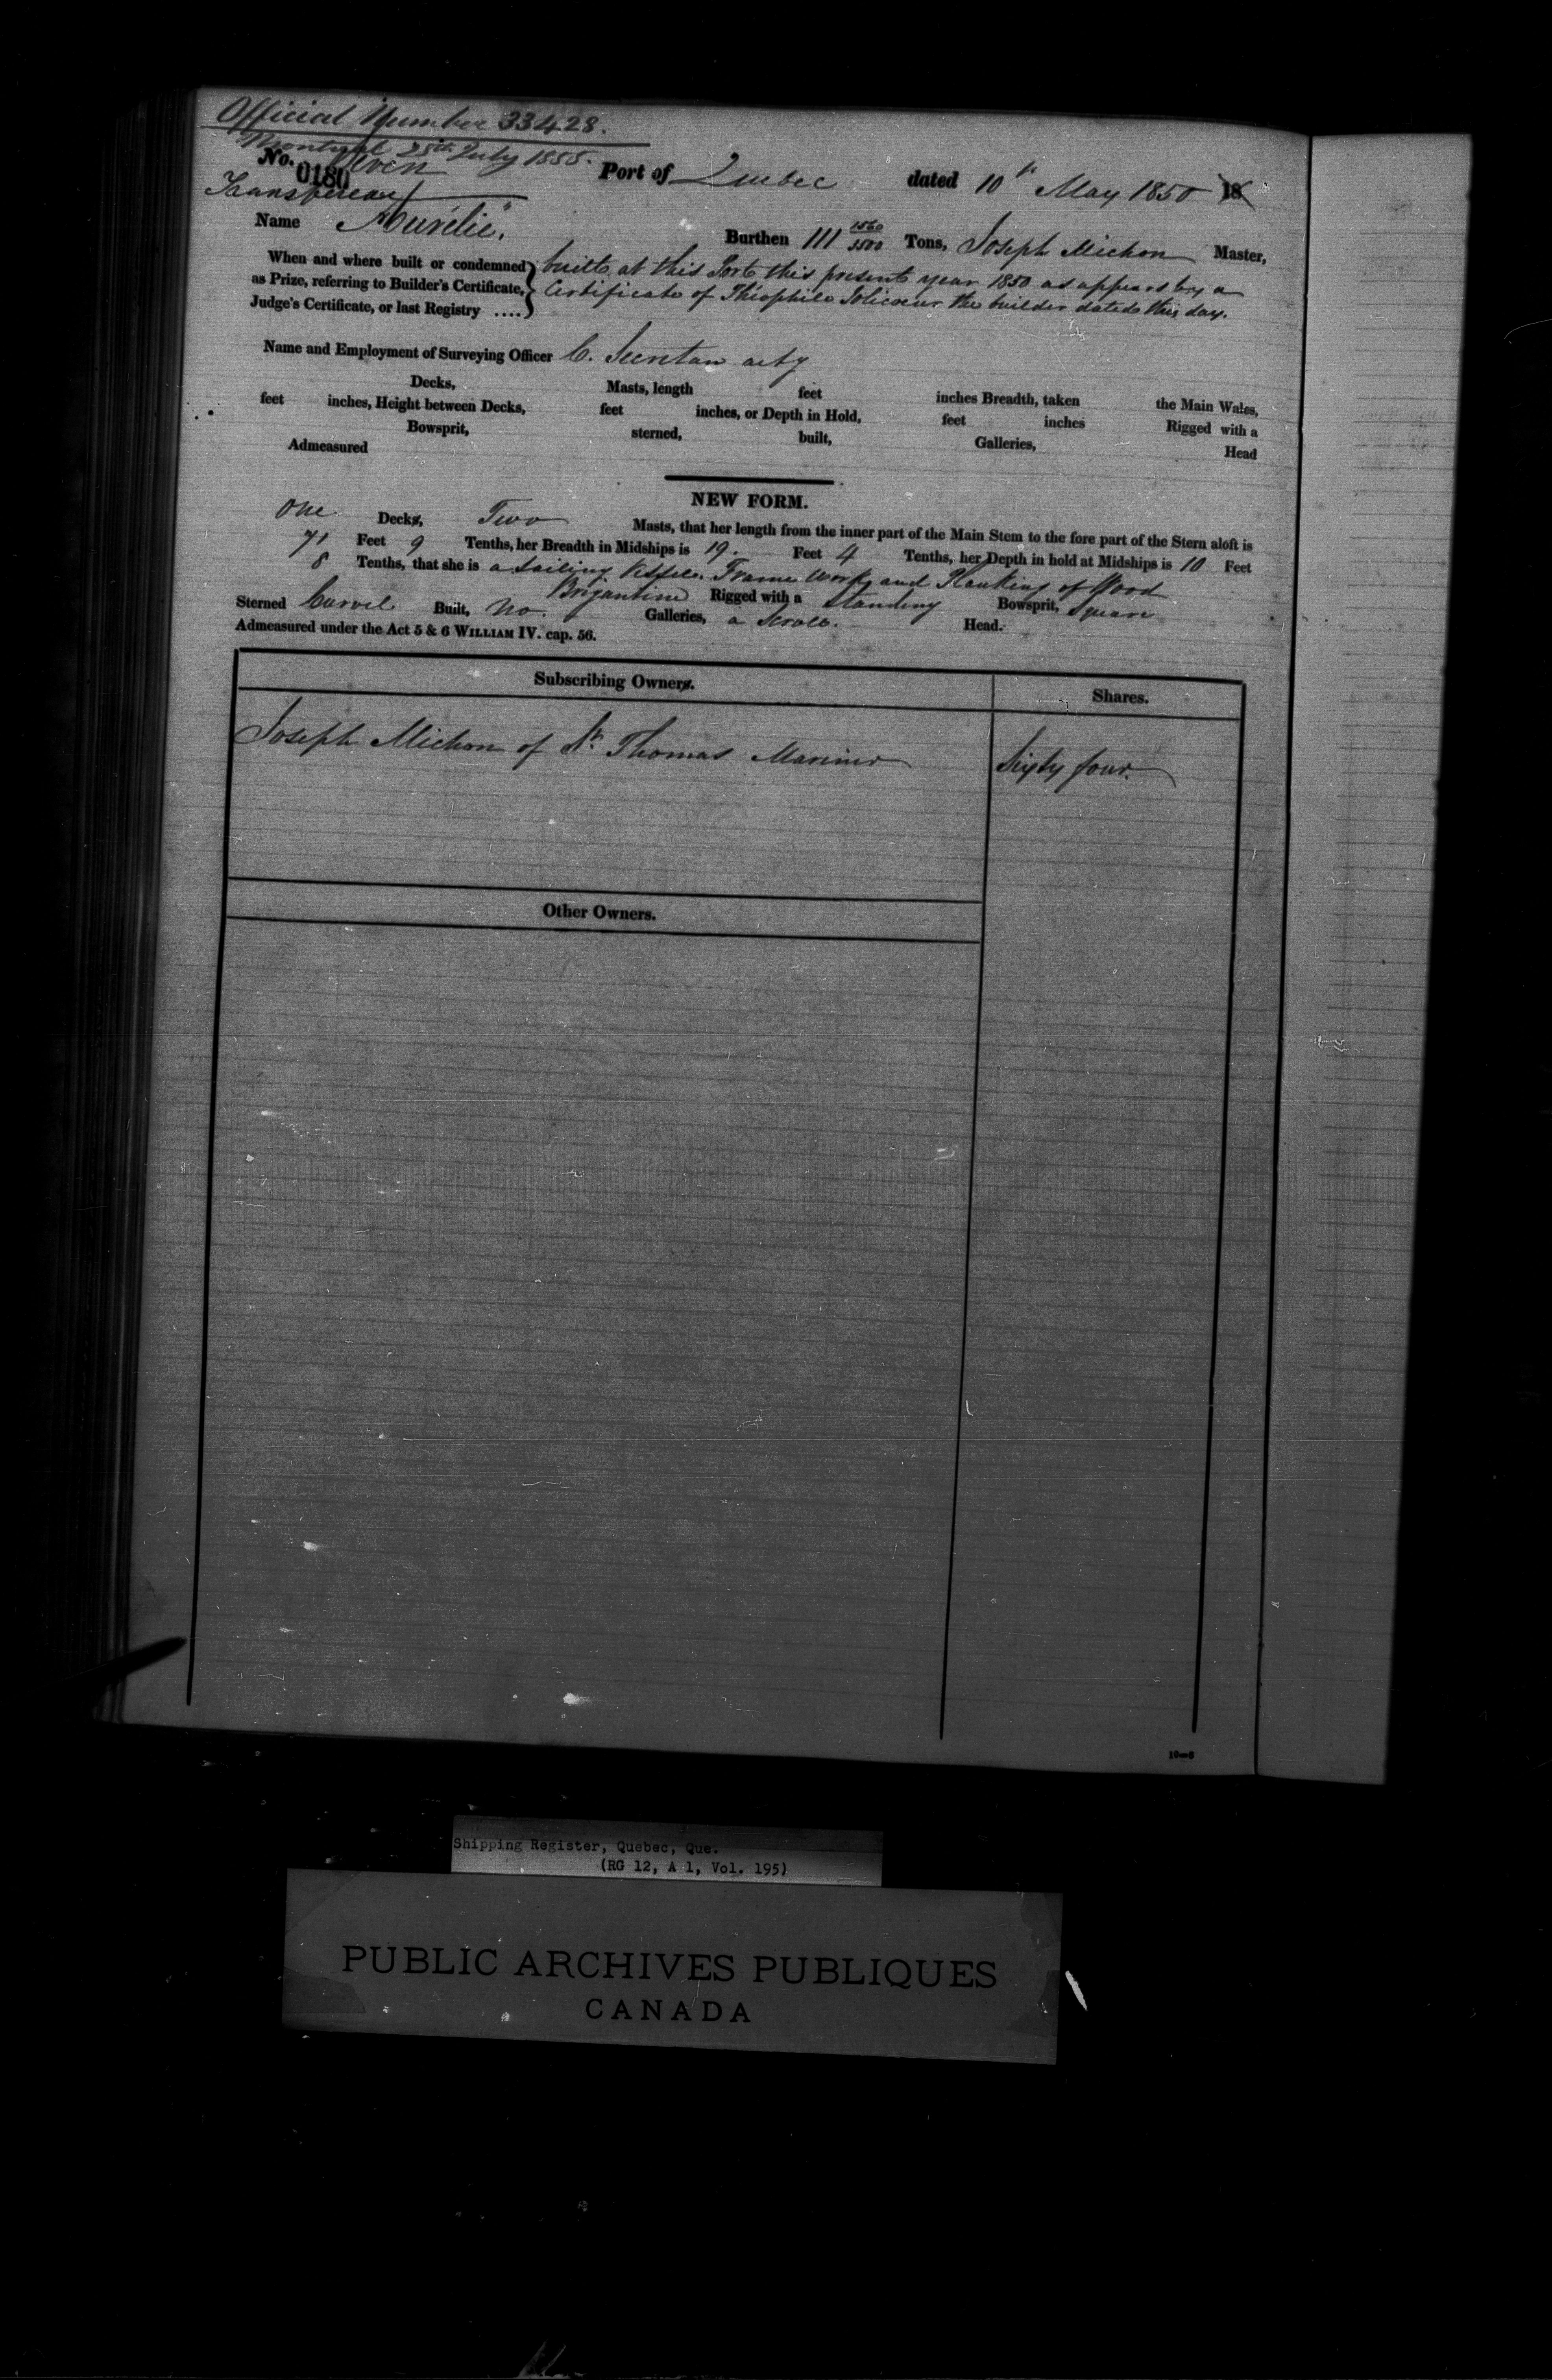 Official Number 33428.
Montreal 25th July 1855.
No. Seven Port of Quebec dated 10th May 1850 18
0180
Transferred
Name "Aurélie". Burthen 111 1560/3500 Tons, Joseph Michon Master,
When and where built or condemned built at this Port this present year 1850 as appears by a
as Prize, referring to Builder's Certificate, Certificate of Théophile Jolicoeur the builder dated this day.
Judge's Certificate, or last Registry ....
Name and Employment of Surveying Officer C. Secretan actg
Decks, Masts, length feet inches Breadth, taken the Main Wales,
feet inches, Height between Decks, feet inches, or Depth in Hold, feet inches Rigged with a
Bowsprit, sterned, built, Galleries, Head
Admeasured
NEW FORM.
One Decks, Two Masts, that her length from the inner part of the Main Stem to the fore part of the Stern aloft is
71 Feet 9 Tenths, her Breadth in Midships is 19. Feet 4 Tenths, her Depth in hold at Midships is 10 Feet
8 Tenths, that she is a Sailing Vessel. Frame Work and Planking of Wood
Brigantine Rigged with a Standing Bowsprit, Square
Sterned Carvel Built, No. Galleries, a Scroll. Head.
Admeasured under the Act 5 & 6 WILLIAM IV. cap. 56.
Subscribing Owners. Shares.
Joseph Michon of St. Thomas Mariner Sixty four.
Other Owners.
Shipping Register, Quebec, Que.
(RG 12, A 1, Vol. 195)
PUBLIC ARCHIVES PUBLIQUES
CANADA